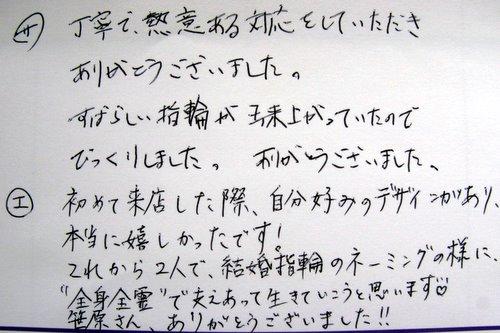 サ 丁寧で、熱意ある対応をしていただき
ありがとうございました。
すばらしい指輪が出来上がっていたので
びっくりしました。 ありがとうございました。
エ 初めて来店した際、自分好みのデザインがあり、
本当に嬉しかったです!
これから2人で、結婚指輪のネーミングの様に、
"全身全霊"で支えあって生きていこうと思います♡
笹原さん、ありがとうございました!!